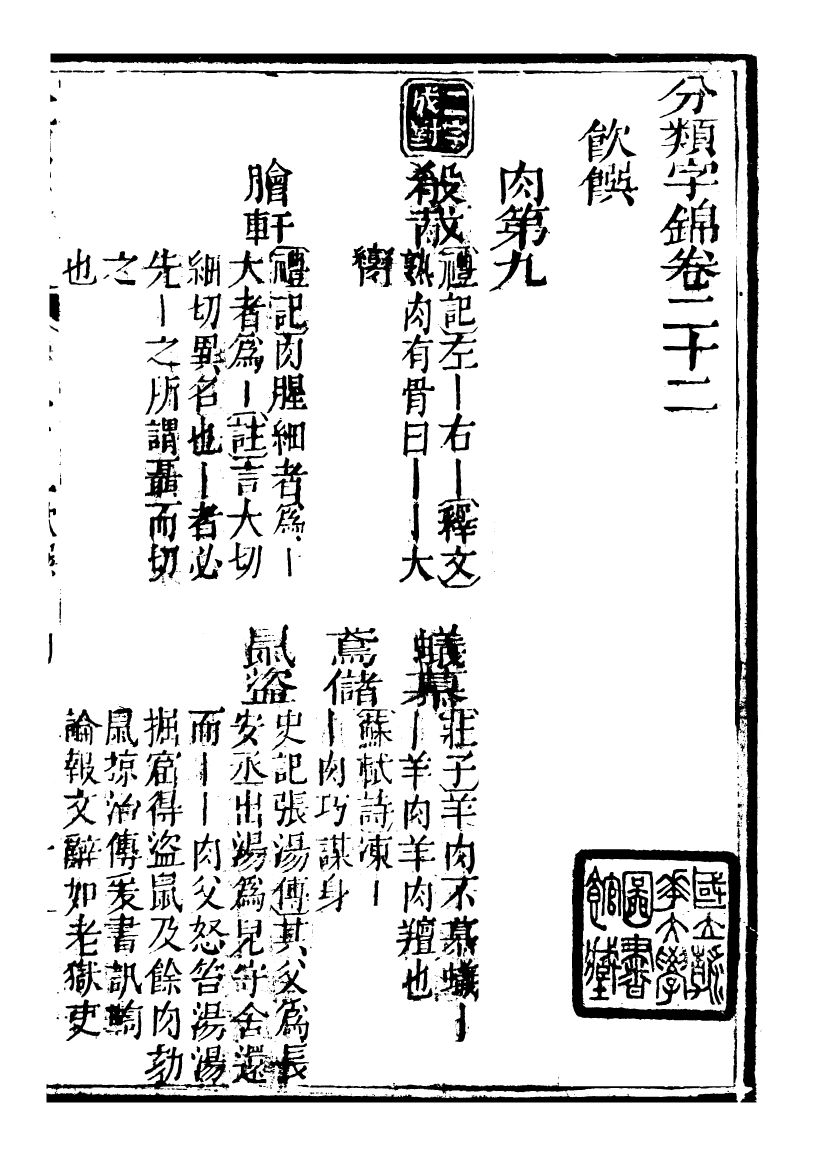 分類字錦卷二十二
飲饌
肉第九
二字成對
殽胾
禮記左丨右丨釋文
熟肉有骨曰丨丨大
臠
膾軒
禮記肉腥細者爲丨
大者爲丨註言大切
細切異名也丨者必
先丨之所謂聶而切
之
也
蟻慕
莊子羊肉不慕蟻丨
丨羊肉羊肉羶也
鳶儲
蘇軾詩凍丨
丨肉巧謀身
鼠盜
史記張湯傳其父爲長
安丞出湯爲兒守舍還
而丨丨肉父怒笞湯湯
掘窟得盜鼠及餘肉劾
鼠掠治傳爰書訊鞫
論報文辭如老獄吏
國立
大學
圖書
館藏